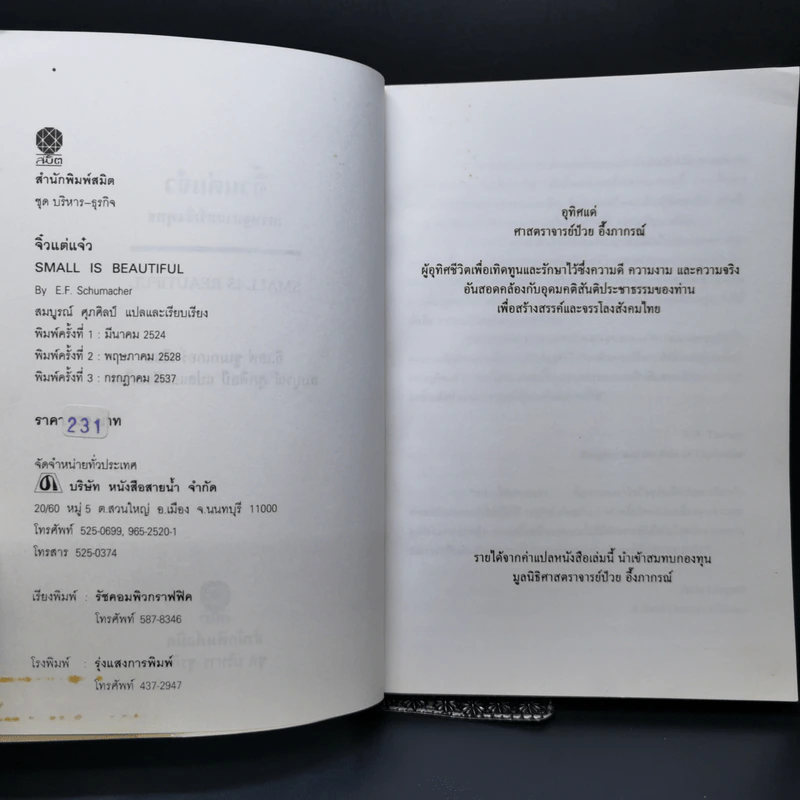 สมิต
สำนักพิมพ์สมิต
ชุด บริหาร-ธุรกิจ
จิ๋วแต่แจ๋ว
SMALL IS BEAUTIFUL
By E.F. Schumacher
สมบูรณ์ ศุภศิลป์ แปลและเรียบเรียง
พิมพ์ครั้งที่ 1 : มีนาคม 2524
พิมพ์ครั้งที่ 2 : พฤษภาคม 2528
พิมพ์ครั้งที่ 3 : กรกฎาคม 2537
ราคา 231 บาท
จัดจำหน่ายทั่วประเทศ
บริษัท หนังสือสายน้ำ จำกัด
20/60 หมู่ 5 ต.สวนใหญ่ อ.เมือง จ.นนทบุรี 11000
โทรศัพท์ 525-0699, 965-2520-1
โทรสาร 525-0374
เรียงพิมพ์ : รัชคอมพิวกราฟฟิค
โทรศัพท์ 587-8346
โรงพิมพ์ : รุ่งแสงการพิมพ์
โทรศัพท์ 437-2947
อุทิศแด่
ศาสตราจารย์ป๋วย อึ๊งภากรณ์
ผู้อุทิศชีวิตเพื่อเทิดทูนและรักษาไว้ซึ่งความดี ความงาม และความจริง
อันสอดคล้องกับอุดมคติสันติประชาธรรมของท่าน
เพื่อสร้างสรรค์และจรรโลงสังคมไทย
รายได้จากค่าแปลหนังสือเล่มนี้ นำเข้าสมทบกองทุน
มูลนิธิศาสตราจารย์ป๋วย อึ๊งภากรณ์